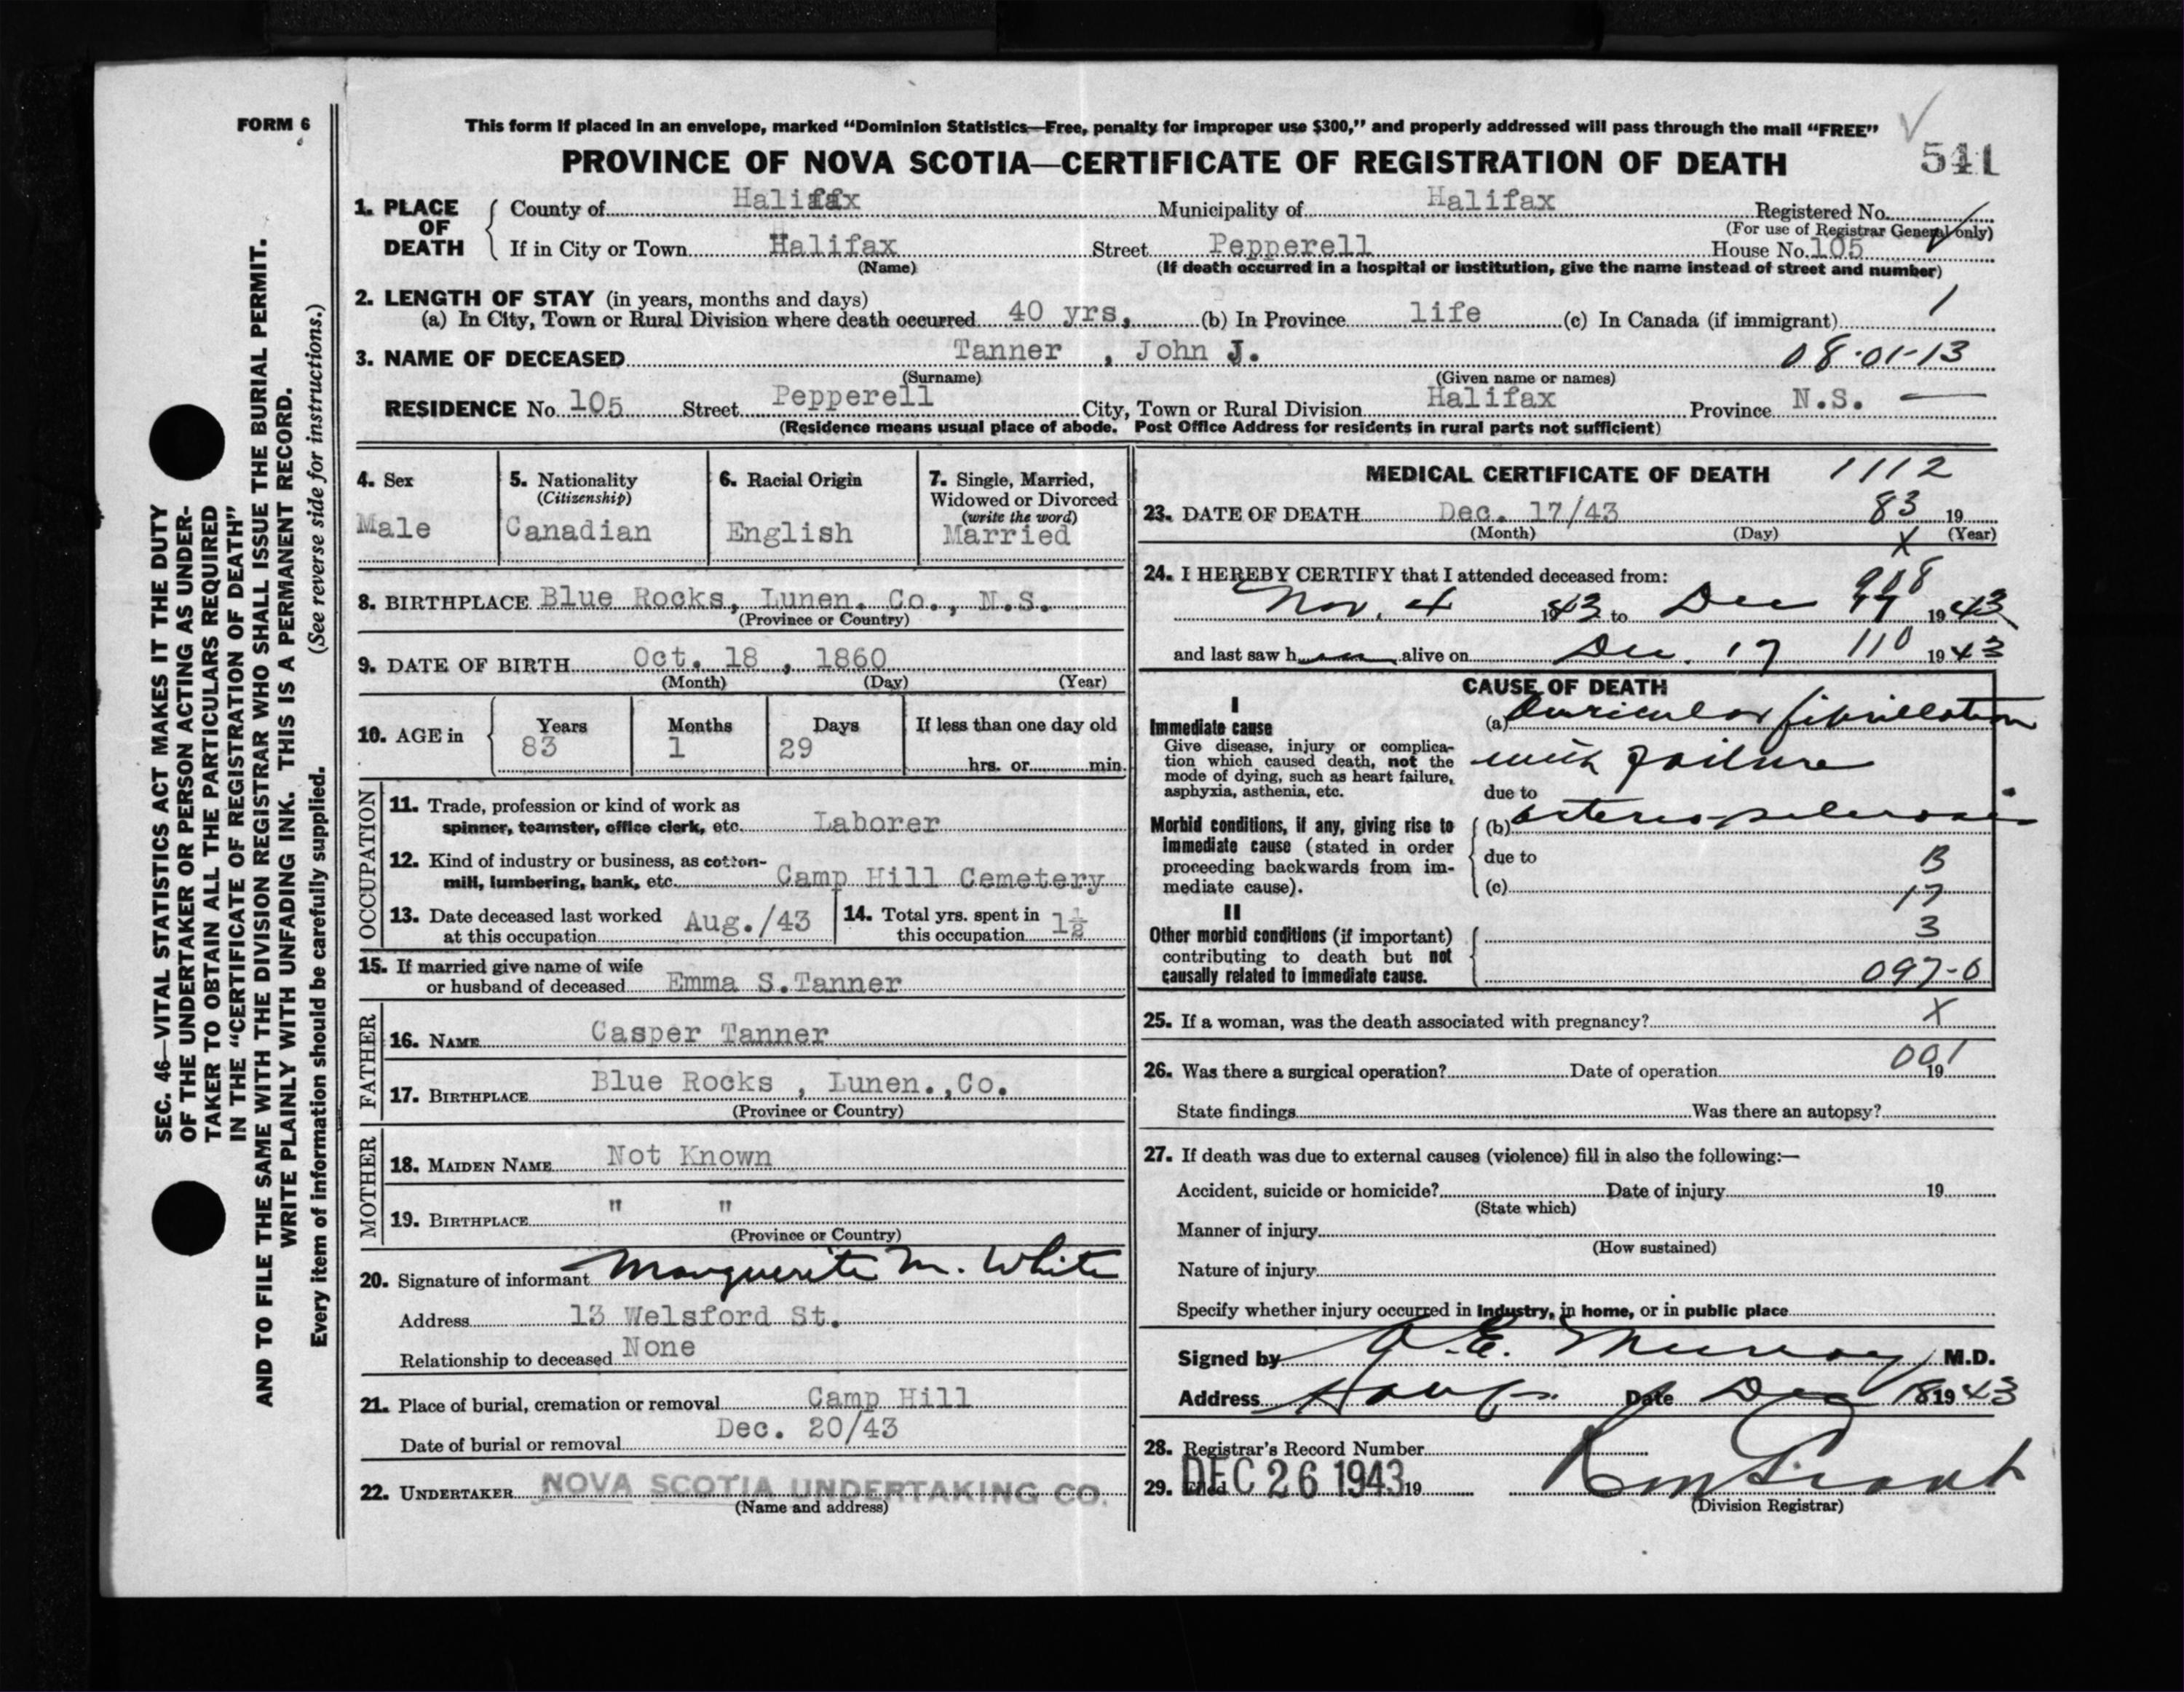 FORM 6
This form if placed in an envelope, marked “Dominion Statistics—Free, penalty for improper use $300,” and properly addressed will pass through the mail “FREE”
PROVINCE OF NOVA SCOTIA—CERTIFICATE OF REGISTRATION OF DEATH 541
1. PLACE OF DEATH
County of Halifax Municipality of Halifax Registered No.
(For use of Registrar General only)
If in City or Town Halifax Street Pepperell House No. 105
(Name) (If death occurred in a hospital or institution, give the name instead of street and number)
2. LENGTH OF STAY (in years, months and days) 1
(a) In City, Town or Rural Division where death occurred 40 yrs, (b) In Province life (c) In Canada (if immigrant)
3. NAME OF DECEASED Tanner , John J. 08-01-13
(Surname) (Given name or names)
RESIDENCE No. 105 Street Pepperell City, Town or Rural Division Halifax Province N.S. —
(Residence means usual place of abode. Post Office Address for residents in rural parts not sufficient)
4. Sex
Male
5. Nationality
(Citizenship)
Canadian
6. Racial Origin
English
7. Single, Married,
Widowed or Divorced
(write the word)
Married
8. BIRTHPLACE Blue Rocks, Lunen. Co., N.S.
(Province or Country)
9. DATE OF BIRTH Oct. 18 , 1860
(Month) (Day) (Year)
10. AGE in
Years Months Days If less than one day old
83 1 29
hrs. or min.
OCCUPATION
11. Trade, profession or kind of work as
spinner, teamster, office clerk, etc. Laborer
12. Kind of industry or business, as cotton-
mill, lumbering, bank, etc. Camp Hill Cemetery
13. Date deceased last worked
at this occupation Aug./43
14. Total yrs. spent in
this occupation 1½
15. If married give name of wife
or husband of deceased Emma S.Tanner
FATHER
16. NAME Casper Tanner
17. BIRTHPLACE Blue Rocks , Lunen.,Co.
(Province or Country)
MOTHER
18. MAIDEN NAME Not Known
19. BIRTHPLACE " "
(Province or Country)
20. Signature of informant Marguerite M. White
Address 13 Welsford St.
Relationship to deceased None
21. Place of burial, cremation or removal Camp Hill
Date of burial or removal Dec. 20/43
22. UNDERTAKER NOVA SCOTIA UNDERTAKING CO.
(Name and address)
MEDICAL CERTIFICATE OF DEATH 1112
23. DATE OF DEATH Dec. 17/43 83 19
(Month) (Day) X (Year)
24. I HEREBY CERTIFY that I attended deceased from: 908
Nov. 4 1943 to Dec 17 1943
and last saw h im alive on Dec. 17 110 1943
CAUSE OF DEATH
I
Immediate cause
Give disease, injury or complica-
tion which caused death, not the
mode of dying, such as heart failure,
asphyxia, asthenia, etc.
(a) Auricular fibrillation
with failure
due to
Morbid conditions, if any, giving rise to
immediate cause (stated in order
proceeding backwards from im-
mediate cause).
(b) arterio-sclerosis
due to B
(c) 17
II
Other morbid conditions (if important)
contributing to death but not
causally related to immediate cause.
3
097-0
25. If a woman, was the death associated with pregnancy? X
001
26. Was there a surgical operation? Date of operation 19
State findings Was there an autopsy?
27. If death was due to external causes (violence) fill in also the following:—
Accident, suicide or homicide? Date of injury 19
(State which)
Manner of injury
(How sustained)
Nature of injury
Specify whether injury occurred in industry, in home, or in public place
Signed by E. Murray M.D.
Address Date Dec 18 1943
28. Registrar's Record Number
29. Filed DEC 26 1943 19
(Division Registrar)
SEC. 46—VITAL STATISTICS ACT MAKES IT THE DUTY
OF THE UNDERTAKER OR PERSON ACTING AS UNDER-
TAKER TO OBTAIN ALL THE PARTICULARS REQUIRED
IN THE “CERTIFICATE OF REGISTRATION OF DEATH”
AND TO FILE THE SAME WITH THE DIVISION REGISTRAR WHO SHALL ISSUE THE BURIAL PERMIT.
WRITE PLAINLY WITH UNFADING INK. THIS IS A PERMANENT RECORD.
Every item of information should be carefully supplied. (See reverse side for instructions.)